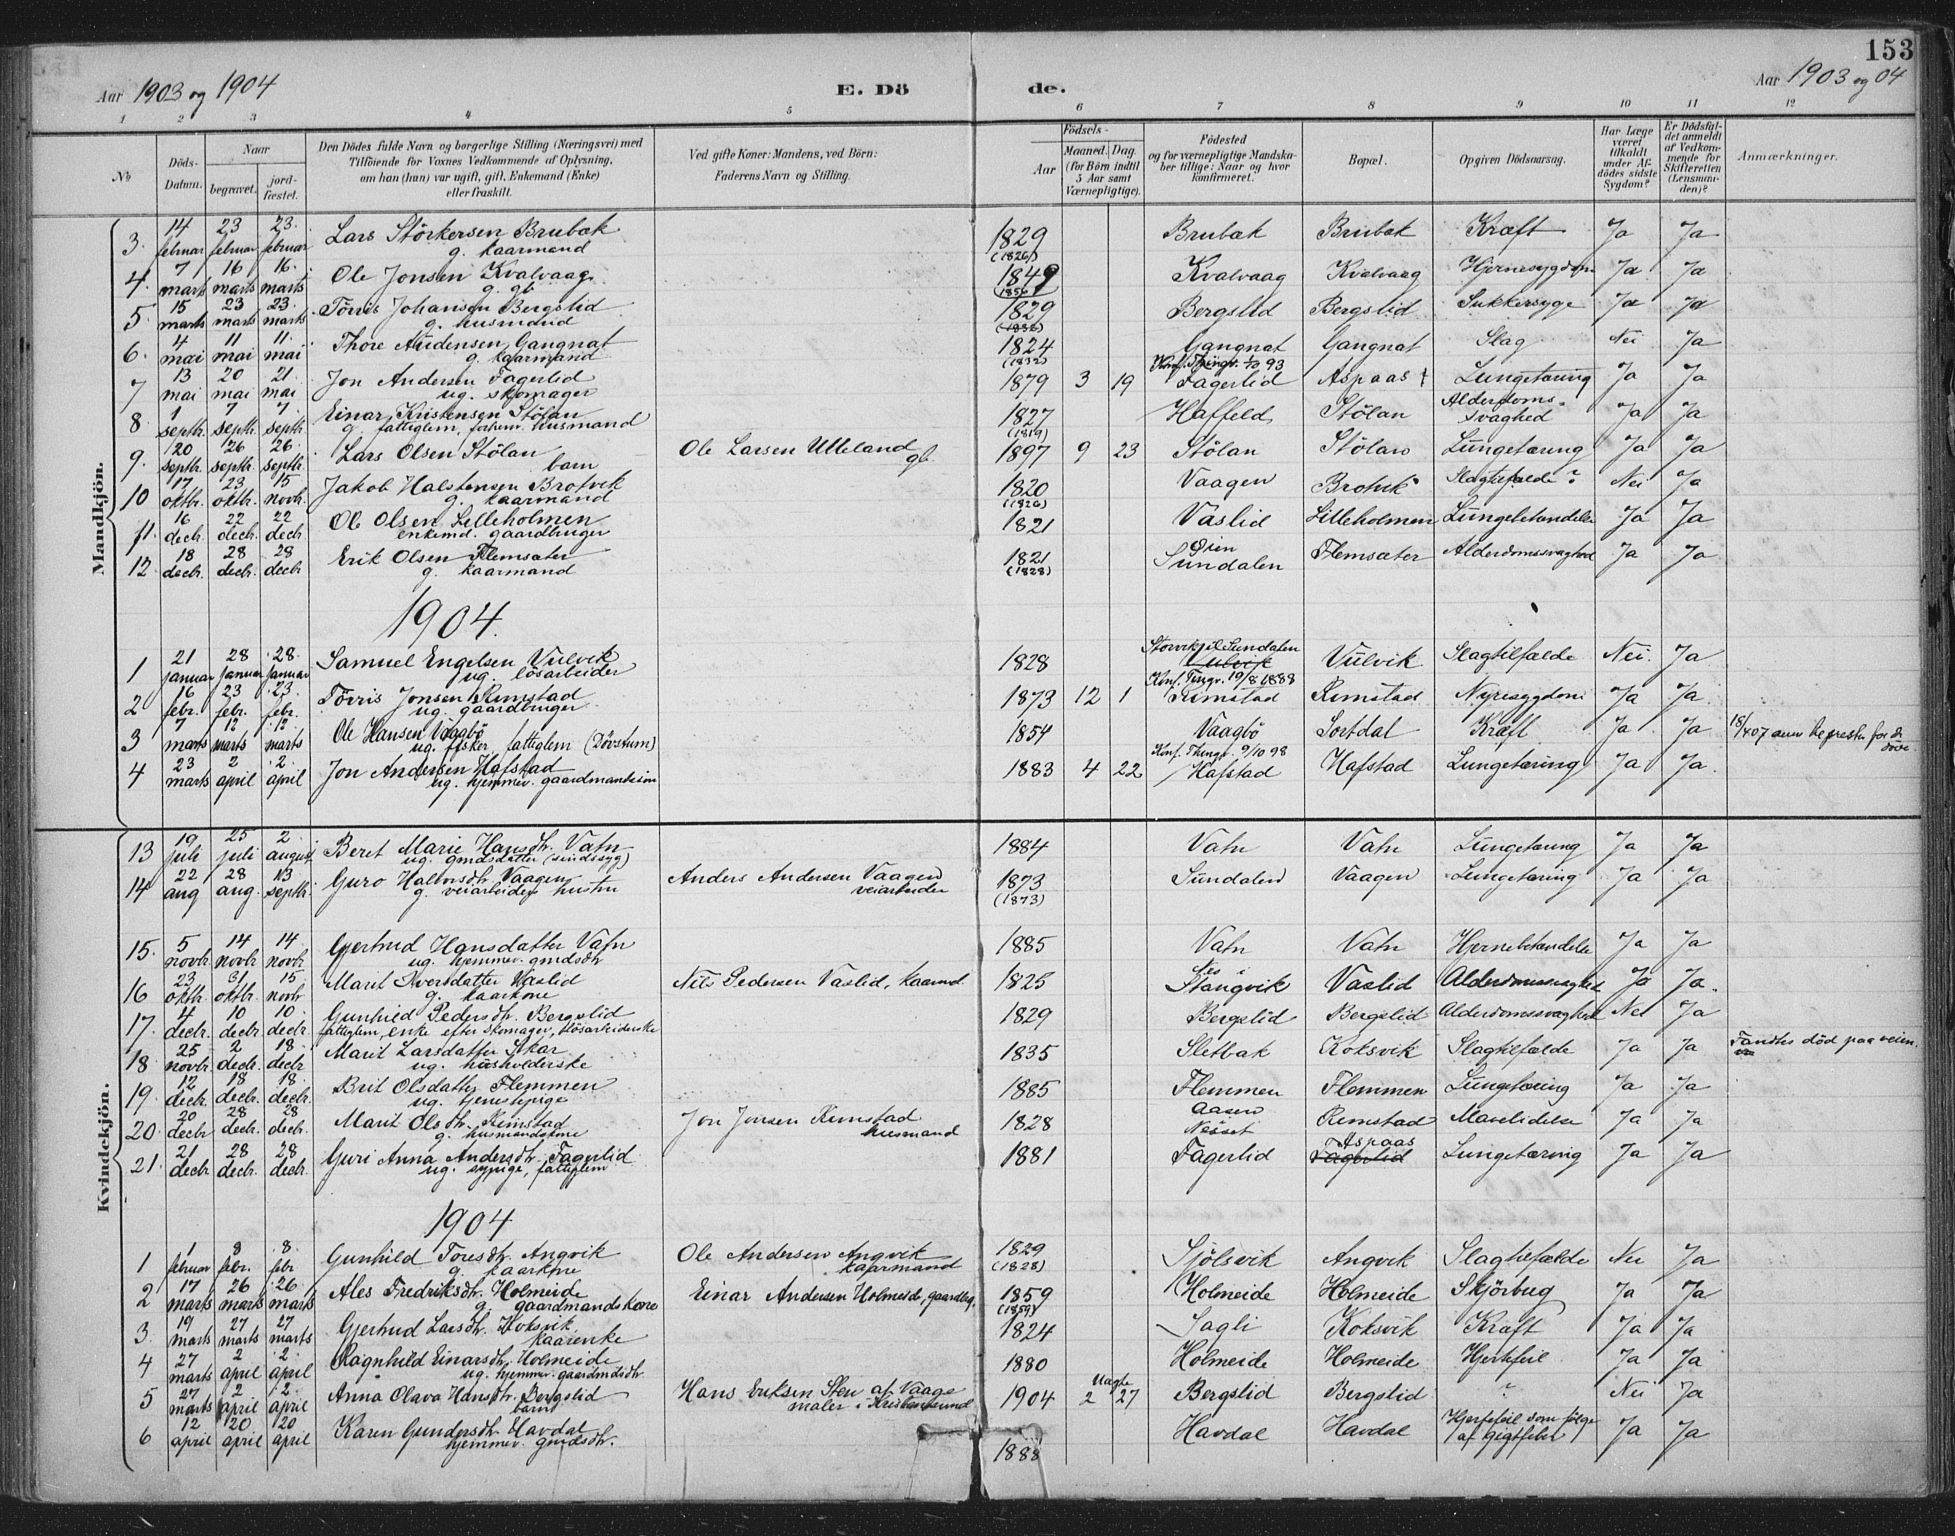 153
Aar 1903 og 1904
E. Dö
de.
Aar 1903 og 04
1 2 3 4 5 6 7 8 9 10 11 12
No
Döds-Datum.
Naar
begravet.
jord-fæstet.
Den Dödes fulde Navn og borgerlige Stilling (Næringsvei) med
Tilföiende for Voxnes Vedkommende af Oplysning,
om han (hun) var ugift, gift, Enkemand (Enke)
eller fraskilt.
Ved gifte Koner: Mandens, ved Börn:
Faderens Navn og Stilling.
Födsels-
Aar
Maaned. Dag.
(for Börn indtil
5 Aar samt
Værnepligtige).
Födested
og for værnepligtige Mandska-
ber tillige: Naar og hvor
konfirmeret.
Bopæl.
Opgiven Dödsaarsag.
Har Læge
været
tilkaldt
under Af-
dödes sidste
Sygdom?
Er Dödsfal-
det anmeldt
af Vedkom-
mende for
Skifteretten
(Lensman-
den)?
Anmærkninger.
Mandkjön.
3. 14 februar 23 februar 23. februar Lars Störkersen Brubæk g. kaarmand 1829 (1826) Brubæk Brubæk Kræft Ja Ja
4. 7 marts 16 marts 16. marts Ole Jonsen Kvalvaag g. gb. 1849 Kvalvaag Kvalvaag Hjernesygdom Ja Ja
5. 15 marts 23 marts 23. marts Törris Johansen Bergslid g. husmand 1829 (1836) Bergslid Bergslid Sukkersyge Ja Ja
6. 4 mai 11 mai 11. mai Thore Audensen Gangnat g. kaarmand 1824 (1832) Gangnat Gangnat Slag Nei Ja
7 13 mai 20 mai 21 mai Jon Andersen Fagerlid ug. skomager 1879 3 19 Konf. Thingv. 1/10 93 Fagerlid Aspaas Lungetæring Ja Ja
8. 1 septbr. 7 septbr. 7. septbr. Einar Kristensen Stölan g. fattiglem, forhenv. husmand 1827 (1819) Haffeld Stölan Alderdoms-svaghed Ja Ja
9. 20 septbr. 26 septbr. 26. septbr. Lars Olsen Stölan barn Ole Larsen Ulleland gb. 1897 9 23 Stölan Stölan Lungetæring Ja Ja
10 17 oktbr. 23 oktbr. 15 novbr. Jakob Halstensen Brotvik g. kaarmand 1820 (1826) Vaagen Brotvik Slagtilfælde Nei Ja
11. 16 decb. 22 decb. 22 decb Ole Olsen Lilleholmen enkemd. gaardbruger 1821 Vaslid Lilleholmen Lungebetændelse Ja Ja
12. 18 decbr. 28 decbr. 28 decbr Erik Olsen Flemsæter g. kaarmand 1821 (1828) Öien Sundalen Flemsæter Alderdomssvaghed Ja Ja
1904.
1 21 januar 28 januar 28. januar Samuel Engelsen Vulvik ug. lösarbeider 1828 Storvik i Sundalen Vulvik Slagtilfælde Nei. Ja
2 16 febr. 23 febr. 23. febr. Törris Jonsen Rimstad ug. gaardbruger 1873 12 1 Konf. Tingv. 19/8 1888 Rimstad Rimstad Nyresygdom Ja Ja
3 7 marts 12 marts 12. marts Ole Hansen Vaagbö ug. fisker, fattiglem (Dövstum) 1854 Vaagbö Soltdal Kræft Ja Ja 18/4 07 anm
4 23 marts 2 april 2. april Jon Andersen Hafstad ug. hjemmev. gaardmandssön 1883 4 22 Konf. Thingv. 9/10 98 Hafstad Hafstad Lungetæring Ja Ja
Kvindekjön.
13 19 juli 25 juli 2 august Beret Marie Hansdtr. Vatn ug. gmdsdatter (sindssyg) 1884 Vatn Vatn Lungetæring Ja Ja
14 22 aug 28 aug. 13 septbr. Guro Halvorsdtr. Vaagen g. veiarbeiders hustru Anders Andersen Vaagen veiarbeider 1873 (1873) Sundalen Vaagen Lungetæring Ja Ja
15. 5 novbr 14 novbr 14 novbr Gjertrud Hansdatter Vatn ug. hjemmev. gmdsdtr 1885 Vatn Vatn Hjernebetændelse Ja Ja
16 23 oktbr. 31 oktbr. 15 novbr Marit Iversdatter Vaslid g. kaarkone Nils Pedersen Vaslid, kaarmd. 1825 Nes i Stangvik Vaslid Alderdomssvaghed Ja Ja.
17. 4 decbr. 10 decbr. 10 decbr Gunhild Pedersdtr. Bergslid fattiglem, enke efter skomager, lösarbeiderske 1829 Bergslid Bergslid Alderdomssvaghed Nei Ja
18. 25 novbr 2 decbr. 18. decbr Marit Larsdatter Skar ug. husholderske 1835 Sletbak Koksvik Slagtilfælde Ja Ja Fandtes död paa veien.
19. 12 decbr. 18 decbr. 18. decbr. Brit Olsdatter Flemmen ug. tjenestepige 1885 Flemmen Flemmen Lungetæring Ja Ja
20. 20 decbr 28 decbr. 28 decbr. Marit Olsdtr. Rimstad g. husmandskone Jon Jonsen Rimstad husmand 1828 Aasen Nesset Rimstad Mavelidelse Ja Ja
21. 21 decbr 28 decbr. 28 decbr. Guri Anna Andersdtr. Fagerlid ug. sypige, fattiglem 1881 Fagerlid Aspaas Fagerlid Lungetæring Ja Ja
1904
1 1 februar 8 febr. 8. febr Gunhild Toresdtr. Angvik g. kaarkone Ole Andersen Angvik kaarmand 1829 (1828) Sjölsvik Angvik Slagtilfælde Nei Ja
2 17 marts 26 marts 26. marts Ales Fredriksdtr. Holmeide g. gaardmandskone Einar Andersen Holmeide, gaardbrg. 1859 (1859) Holmeide Holmeide Skjörbug Ja Ja
3. 19 marts 27 marts 27 marts Gjertrud Larsdtr. Koksvik kaarenke 1824 Sagli Koksvik Kræft Ja Ja
4 27 marts 2 april 2. april Ragnhild Einarsdtr. Holmeide ug. hjemmev. gaardmdsdtr. 1880 Holmeide Holmeide Hjertefeil Ja Ja
5 27 marts 2 april 2. april Anna Olava Hansdtr. Bergslid barn Hans Eriksen Sten af Vaage maler i Kristiansund 1904 2 27 Uægte Bergslid Bergslid Nei Ja
6 12 april 20 april 20 april Karen Gundersdtr. Havdal hjemmev. gmdsdtr. 1888 Havdal Havdal Hjertefeil som fölge af gigtfeber Ja Ja